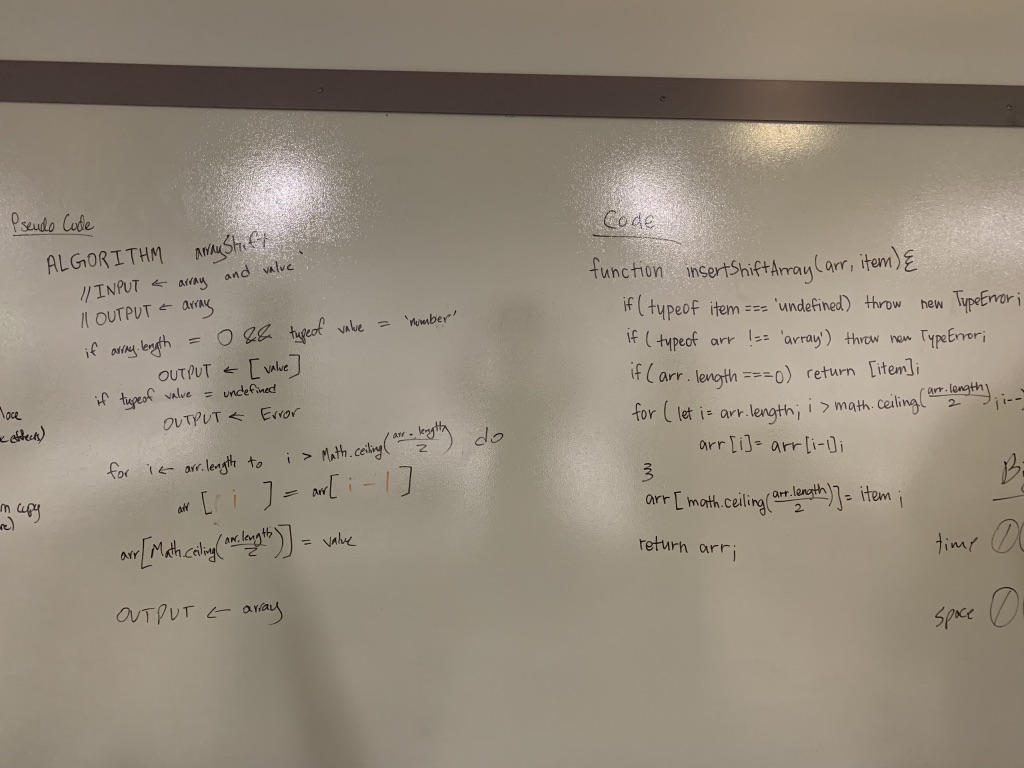 Pseudo Code
ALGORITHM arrayShift
// INPUT ← array and value
// OUTPUT ← array
if array.length = 0 && typeof value = 'number'
OUTPUT ← [value]
if typeof value = undefined
OUTPUT ← Error
for i ← arr.length to i > Math.ceiling(arr.length/2) do
arr [ i ] = arr[ i - 1 ]
arr[Math.ceiling(arr.length/2)] = value
OUTPUT ← array
copy
Code
function insertShiftArray(arr, item){
if(typeof item === 'undefined) throw new TypeError;
if (typeof arr !== 'array') throw new TypeError;
if(arr.length ===0) return [item];
for (let i= arr.length; i > math.ceiling(arr.length/2); i--
arr[i]= arr[i-1];
}
arr[math.ceiling(arr.length/2)]= item;
return arr;
time
space